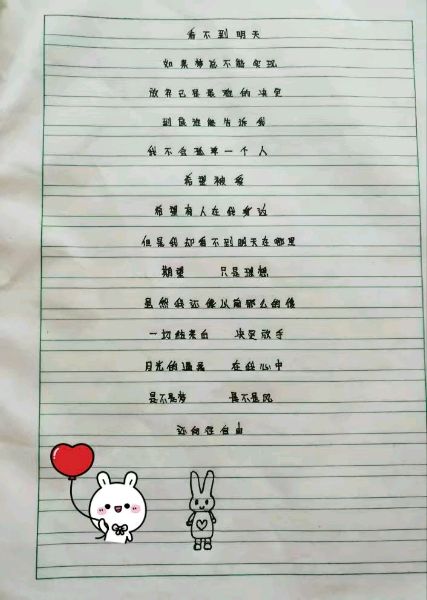 看不到明天
如果梦总不能实现
放弃已是最难的决定
到底谁能告诉我
我不会孤单一个人
希望被爱
希望有人在我身边
但是我却看不到明天在哪里
期望 只是理想
虽然我还像以前那么的傻
一切结束白 决定放手
月光的温柔 在我心中
是不是梦 是不是风
还向往自由